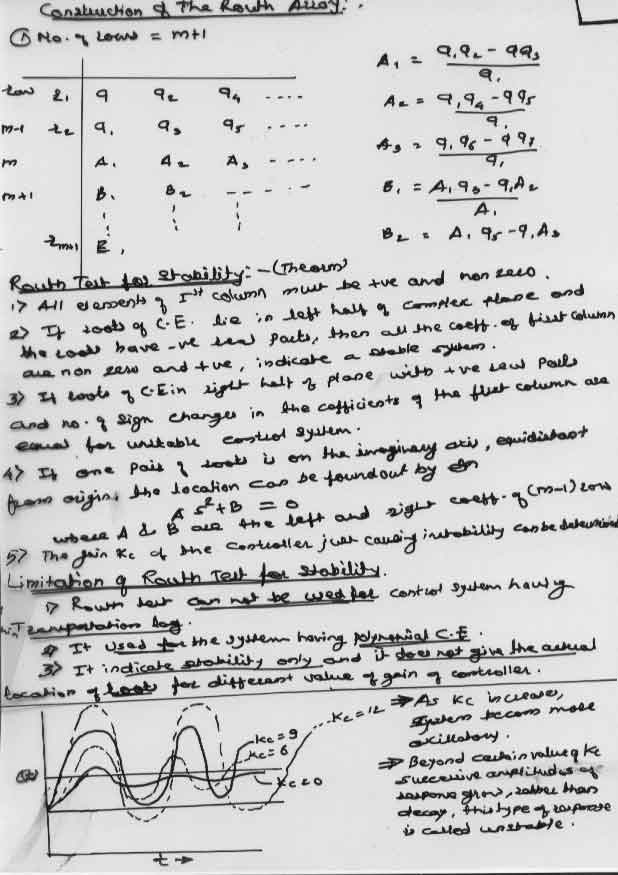 Construction of The Routh Array :
① No. of rows = m+1
row r₁ a a₂ a₄ ----
m-1 r₂ a₁ a₃ a₅ ----
m A₁ A₂ A₃ ----
m+1 B₁ B₂ ----
rₘ₊₁ E₁
A₁ = (a₁a₂ - aa₃)/a₁
A₂ = (a₁a₄ - aa₅)/a₁
A₃ = (a₁a₆ - aa₇)/a₁
B₁ = (A₁a₃ - a₁A₂)/A₁
B₂ = A₁a₅ - a₁A₃
Routh Test for Stability :- (Theorm)
1> All elements of Ist column must be +ve and non zero.
2> If roots of C.E. lie in left half of complex plane and
the roots have -ve real parts, then all the coeff. of first column
are non zero and +ve, indicate a stable system.
3> If roots of C.E in right half of plane with +ve real parts
and no. of sign changes in the cofficients of the first column are
equal for unstable control system.
4> If one pair of roots is on the imaginary axis, equidistant
from origin, the location can be found out by
A s² + B = 0
where A & B are the left and right coeff. of (m-1) row
5> The gain Kc of the controller just causing instability can be determined
Limitation of Routh Test for Stability.
1> Routh test can not be used for control system having
Transportation lag.
2> It used for the system having polynomial C.E.
3> It indicate stability only and it does not give the actual
location of roots for different value of gain of controller.
Kc=12
Kc=9
Kc=6
Kc=0
t →
⇒ As Kc increase,
system becom more
oxillatory.
⇒ Beyond certain value of Kc
successive amplitudes of
response grow, rather than
decay, this type of response
is called unstable.